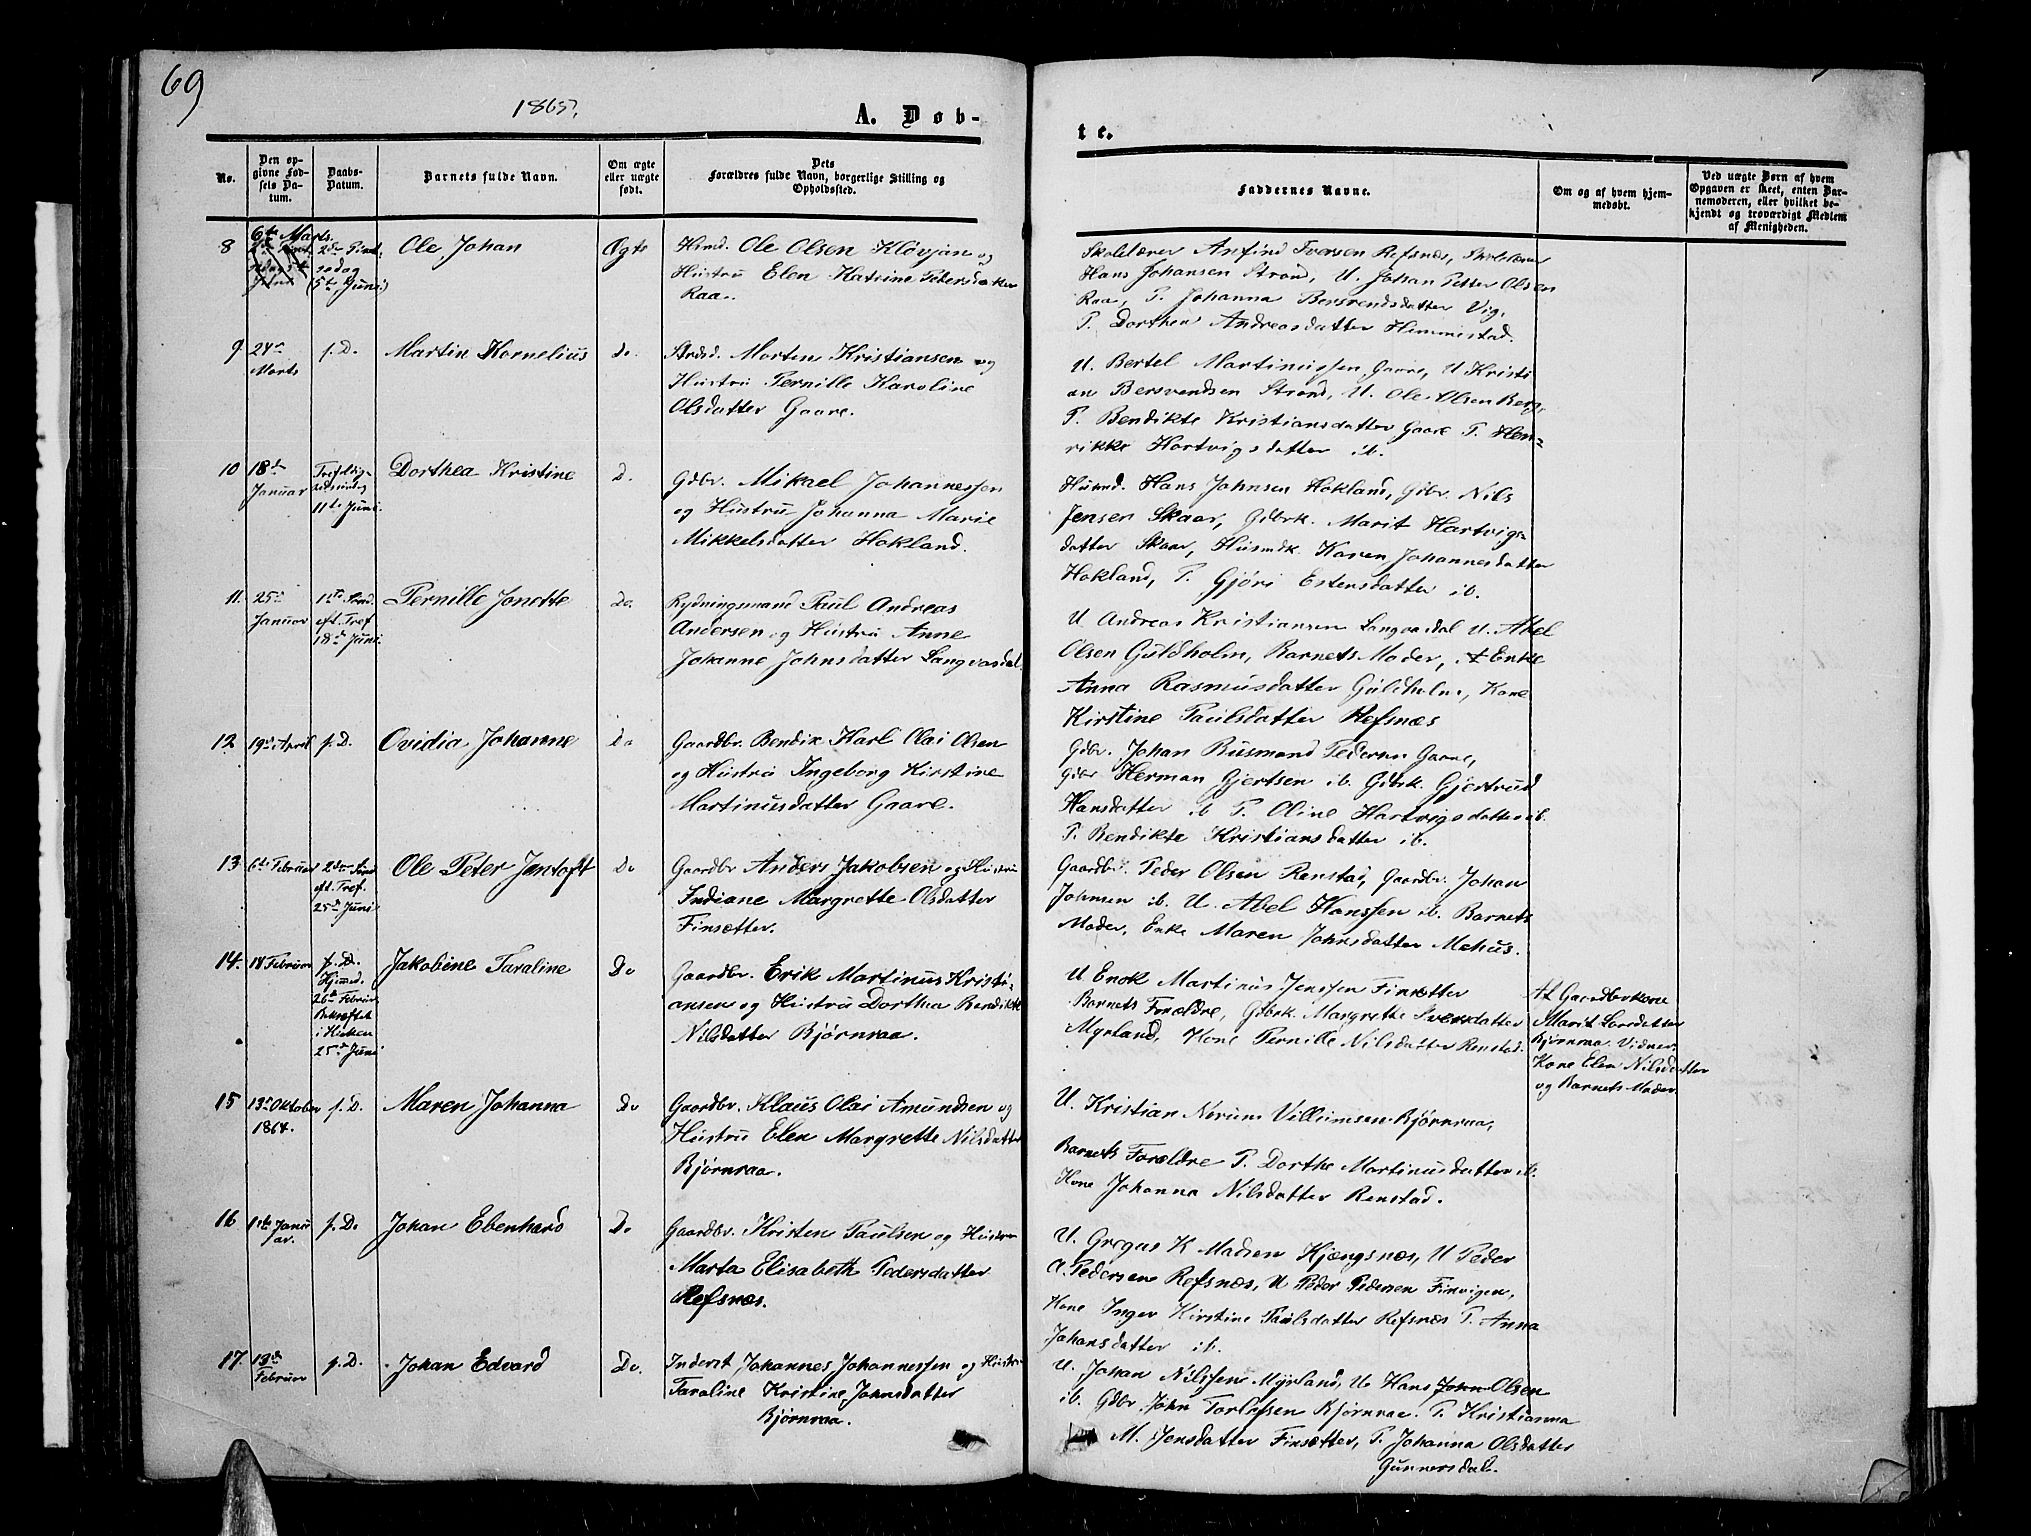 69
1865.
A. Døb-
te.
No.
Den op-
givne Fød-
sels Da-
tum.
Daabs-
Datum.
Barnets fulde Navn.
Om ægte
eller uægte
født.
Dets
Forældres fulde Navn, borgerlige Stilling og
Opholdssted.
Faddernes Navne.
Om og af hvem hjem-
medøbt.
Ved uægte Børn af hvem
Opgaven er skeet, enten Bar-
nemoderen, eller hvilket be-
kjendt og troværdigt Medlem
af Menigheden.
8
6te Marts
2de Pint
sedag
(5te Juni)
Ole Johan
Ægte
Huusd. Ole Olsen Kløvjan og
Hustru Elen Katrine Pedersdatter
Raa.
Skolelærer Arfind Iversen Refsnæs, Skolelærer
Hans Johansen Strand, U. Johan Petter Olsen
Raa, P. Johanna Bersvendsdatter Vig,
P. Dorthea Andreasdatter Hemmestad.
9
24de
Marts
s. D.
Martin Kornelius
Do.
Morten Kristiansen og
Hustru Pernille Karoline
Olsdatter Gaare.
U. Bertel Martinussen Gaare, U Kristi
an Bersvendsen Strand, U. Ole Olsen Berg,
P. Bendikte Kristiansdatter Gaare P. Hen-
rikke Hartvigsdatter ib.
10
18de
Januar
Trefoldig-
hedssøndag
11te Juni
Dorthea Kristine
D.
Gdbr. Mikael Johannessen
og Hustru Johanna Marie
Mikkelsdatter Hokland.
Husmd. Hans Johnsen Hokland, Gdbr. Nils
Jensen Skaar, Gdbrk. Marit Hartvigs-
datter Skaar, Husmdk. Karen Johannesdatter
Hokland, P. Gjøri Estensdatter ib.
11.
25de
Januar
1ste Sønd.
eft. Tref
18de Juni
Pernille Jonette
Do.
Rydningsmand Paul Andreas
Andersen og Hustru Anne
Johanne Johnsdatter Langvasdal
U Andreas Kristiansen Langvasdal U. Abel
Olsen Guldholm, Barnets Moder, Enke
Anna Rasmusdatter Guldholm, Kone
Kirstine Paulsdatter Refsnæs
12
19de April
s. D.
Ovidia Johanne
Do
Gaardbr. Bendix Karl Olai Olsen
og Hustru Ingeborg Kirstine
Martinusdatter Gaare.
Gdbr. Johan Pedersen Gaare,
Gdbr Herman Gjertsen ib. Gdbrk. Gjertrud
Hansdatter ib P. Oline Hartvigsdatter ib.
P. Bendikte Kristiansdatter ib.
13
6te Februar
2den Sønd
eft. Tref.
25de Juni
Ole Peter Jentoft
Do
Gaardbr Anders Jakobsen og Hustru
Indiane Margrette Olsdatter
Finsætter.
Gaardbr. Peder Olsen Renstad, Gaardbr. Johan
Johnsen ib. U. Abel Hanssen ib. Barnets
Moder, Enke Maren Johnsdatter Mehus.
14.
18 Februar
s. D.
Hjemmed.
26de Februar
Bekræftet
i Kirken
25de Juni
Jakobine Taraline
Do
Gaardbr. Erik Martinus Kristi-
ansen og Hustru Dorthea Bendikte
Nilsdatter Bjørnraa.
U Enok Martinus Jenssen Finsætter
Barnets Forældre, Gdbrk. Margrethe Iversdatter
Myrland, Kone Pernille Nilsdatter Renstad.
Af Gaardbrkone
Marit Larsdatter
Bjørnraa. Vidner.
Kone Elen Nilsdatter
og Barnets Moder
15
13de Oktober
1864.
s. D.
Maren Johanna
Do
Gaardbr. Klaus Olai Amundsen og
Hustru Elen Margrette Nilsdatter
Bjørnraa.
U. Kristian Nerum Villumsen Bjørnraa,
Barnets Forældre P. Dorthe Martinusdatter ib.
Kone Johanna Nilsdatter Renstad.
16
1ste Janu
ar.
s. D.
Johan Ebenhard
Do
Gaardbr. Kristen Paulsen og Hustru
Marta Elisabeth Pedersdatter
Refsnæs.
U. Gregus K Madsen Kjængsnæs, U Peder
A. Pedersen Refsnæs, U Peder Pedersen Finvigen,
Kone Inger Kirstine Paulsdatter Refsnæs P. Anna
Johansdatter ib.
17.
Februar
s. D.
Johan Edvard
Do.
Inderst Johannes Johannessen og Hustru
Taraline Kristine Johnsdatter
Bjørnraa.
U. Johan Nilssen Myrland, U. Hans John Olsen
ib. Gdbr. John Torlefsen Bjørnraa. P. Kristianna
M. Jensdatter Finsætter, P. Johanna Olsdatter
Gunnersdal.